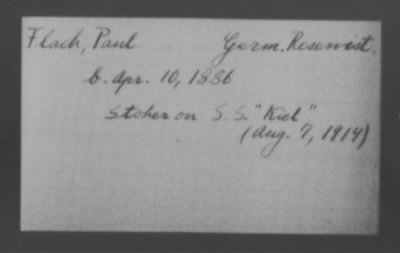 Flach, Paul Germ. Reservist.
b. Apr. 10, 1886
Stoker on S. S. "Kiel"
(Aug. 7, 1914)